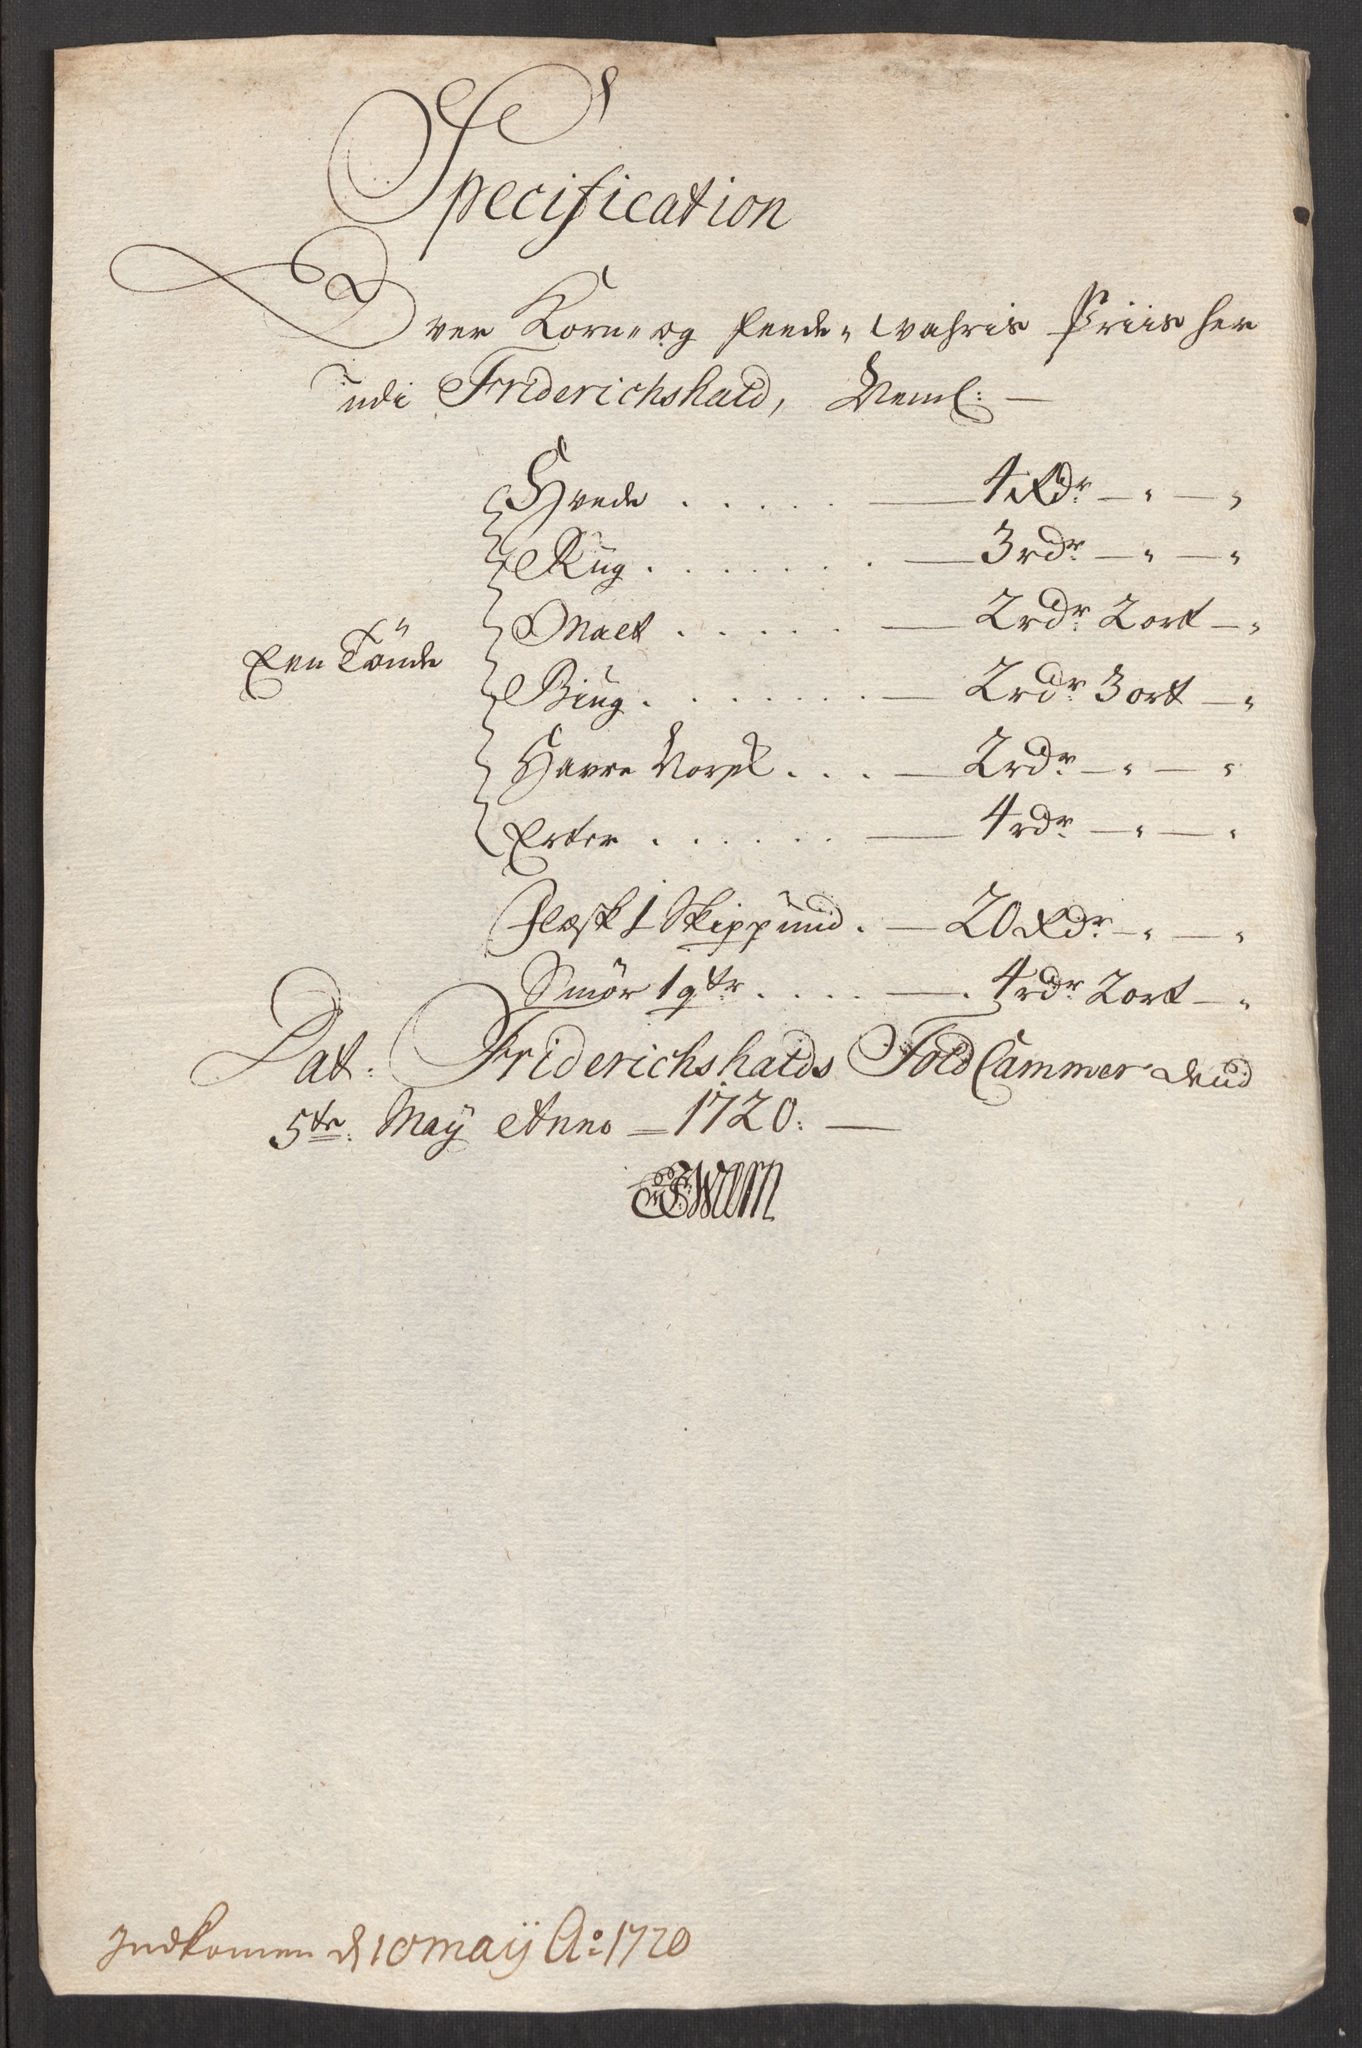 Specification
Over Korn- og feede- wahris Priis her
udi Friderichshald, Neml:
Hvede . . . . . 4 Rdr — " — "
Rug . . . . . . . 3 rdr — " — "
Malt . . . . . 2 rdr 2 ort — "
Een Tönde
Biug . . . . . . . 2 rdr 3 ort — "
Havre Norsk . . . 2 rdr — " — "
Erter . . . . . . 4 rdr — " — "
Flesk 1 Skippund . — 20 Rdr — " — "
Smör 1 qtr . . . . 4 rdr 2 ort — "
Dat. Friderichshalds Told Cammer dend
5te May Anno 1720.
Indkomen d 10 maij Ao 1720